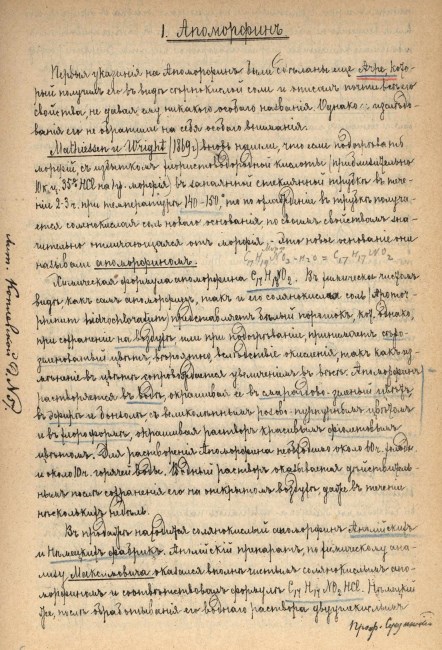 1. Апоморфинъ
Первыя указанія на Апоморфинъ были сдѣланы еще Arppe, кото-
рый получилъ его въ видѣ сѣрнокислой соли и описалъ почти всѣ его
свойства, не давая ему никакого особаго названія. Однако изслѣдо-
ванія его не обратили на себя особаго вниманія.
Mathiessen и Wright (1869.) вновь нашли, что если подогрѣвать
морфій съ избыткомъ хлористоводородной кислоты (приблизительно
10 к.ц. 35% HCl на 1 гр. морфія) въ запаянной стеклянной трубкѣ въ тече-
ніи 2-3 ч. при температурѣ 140-150°, то по охлажденіи въ трубкѣ получа-
ется солянокислая соль новаго основанія по своимъ свойствамъ зна-
чительно отличающаяся отъ морфія. Это новое основаніе они
называли апоморфиномъ. C17 H19 NO3 - H2O = C17 H17 NO2
Химическая формула апоморфина C17 H17 NO2. Въ химически чистомъ
видѣ какъ самъ апоморфинъ, такъ и его солянокислая соль (Apomor-
phinum hydrochloratum) представляетъ бѣлый порошокъ, кот. однако,
при сохраненіи на воздухѣ, или при подогрѣваніи, принимаетъ сѣро-
зеленоватый цвѣтъ, вѣроятно, вслѣдствіе окисленія, такъ какъ из-
мѣненіе въ цвѣтѣ сопровождается увеличеніемъ въ вѣсѣ. Апоморфинъ
растворяется въ водѣ, окрашивая ее въ смарагдово-зеленый цвѣтъ,
въ эфирѣ и бензолѣ съ великолѣпнымъ розово-пурпурнымъ цвѣтомъ
и въ хлороформѣ, окрашивая растворъ красивымъ фіолетовымъ
цвѣтомъ. Для растворенія Апоморфина необходимо около 60 ч. холодн.
и около 10 ч. горячей воды. Водный растворъ оказывается дѣйствитель-
нымъ послѣ сохраненія его на открытомъ воздухѣ, даже въ теченіи
нѣсколькихъ недѣль.
Въ продажѣ находится солянокислый апоморфинъ Англійскихъ
и Нѣмецкихъ фабрикъ. Англійскій препаратъ, по химическому ана-
лизу Максимовича оказался вполнѣ чистымъ солянокислымъ апо-
морфиномъ и соотвѣтствовалъ формулѣ C17 H17 NO2 HCl. Нѣмецкій
же, послѣ обрабатыванія его воднаго раствора двууглекислымъ
Проф.
лит. N 57